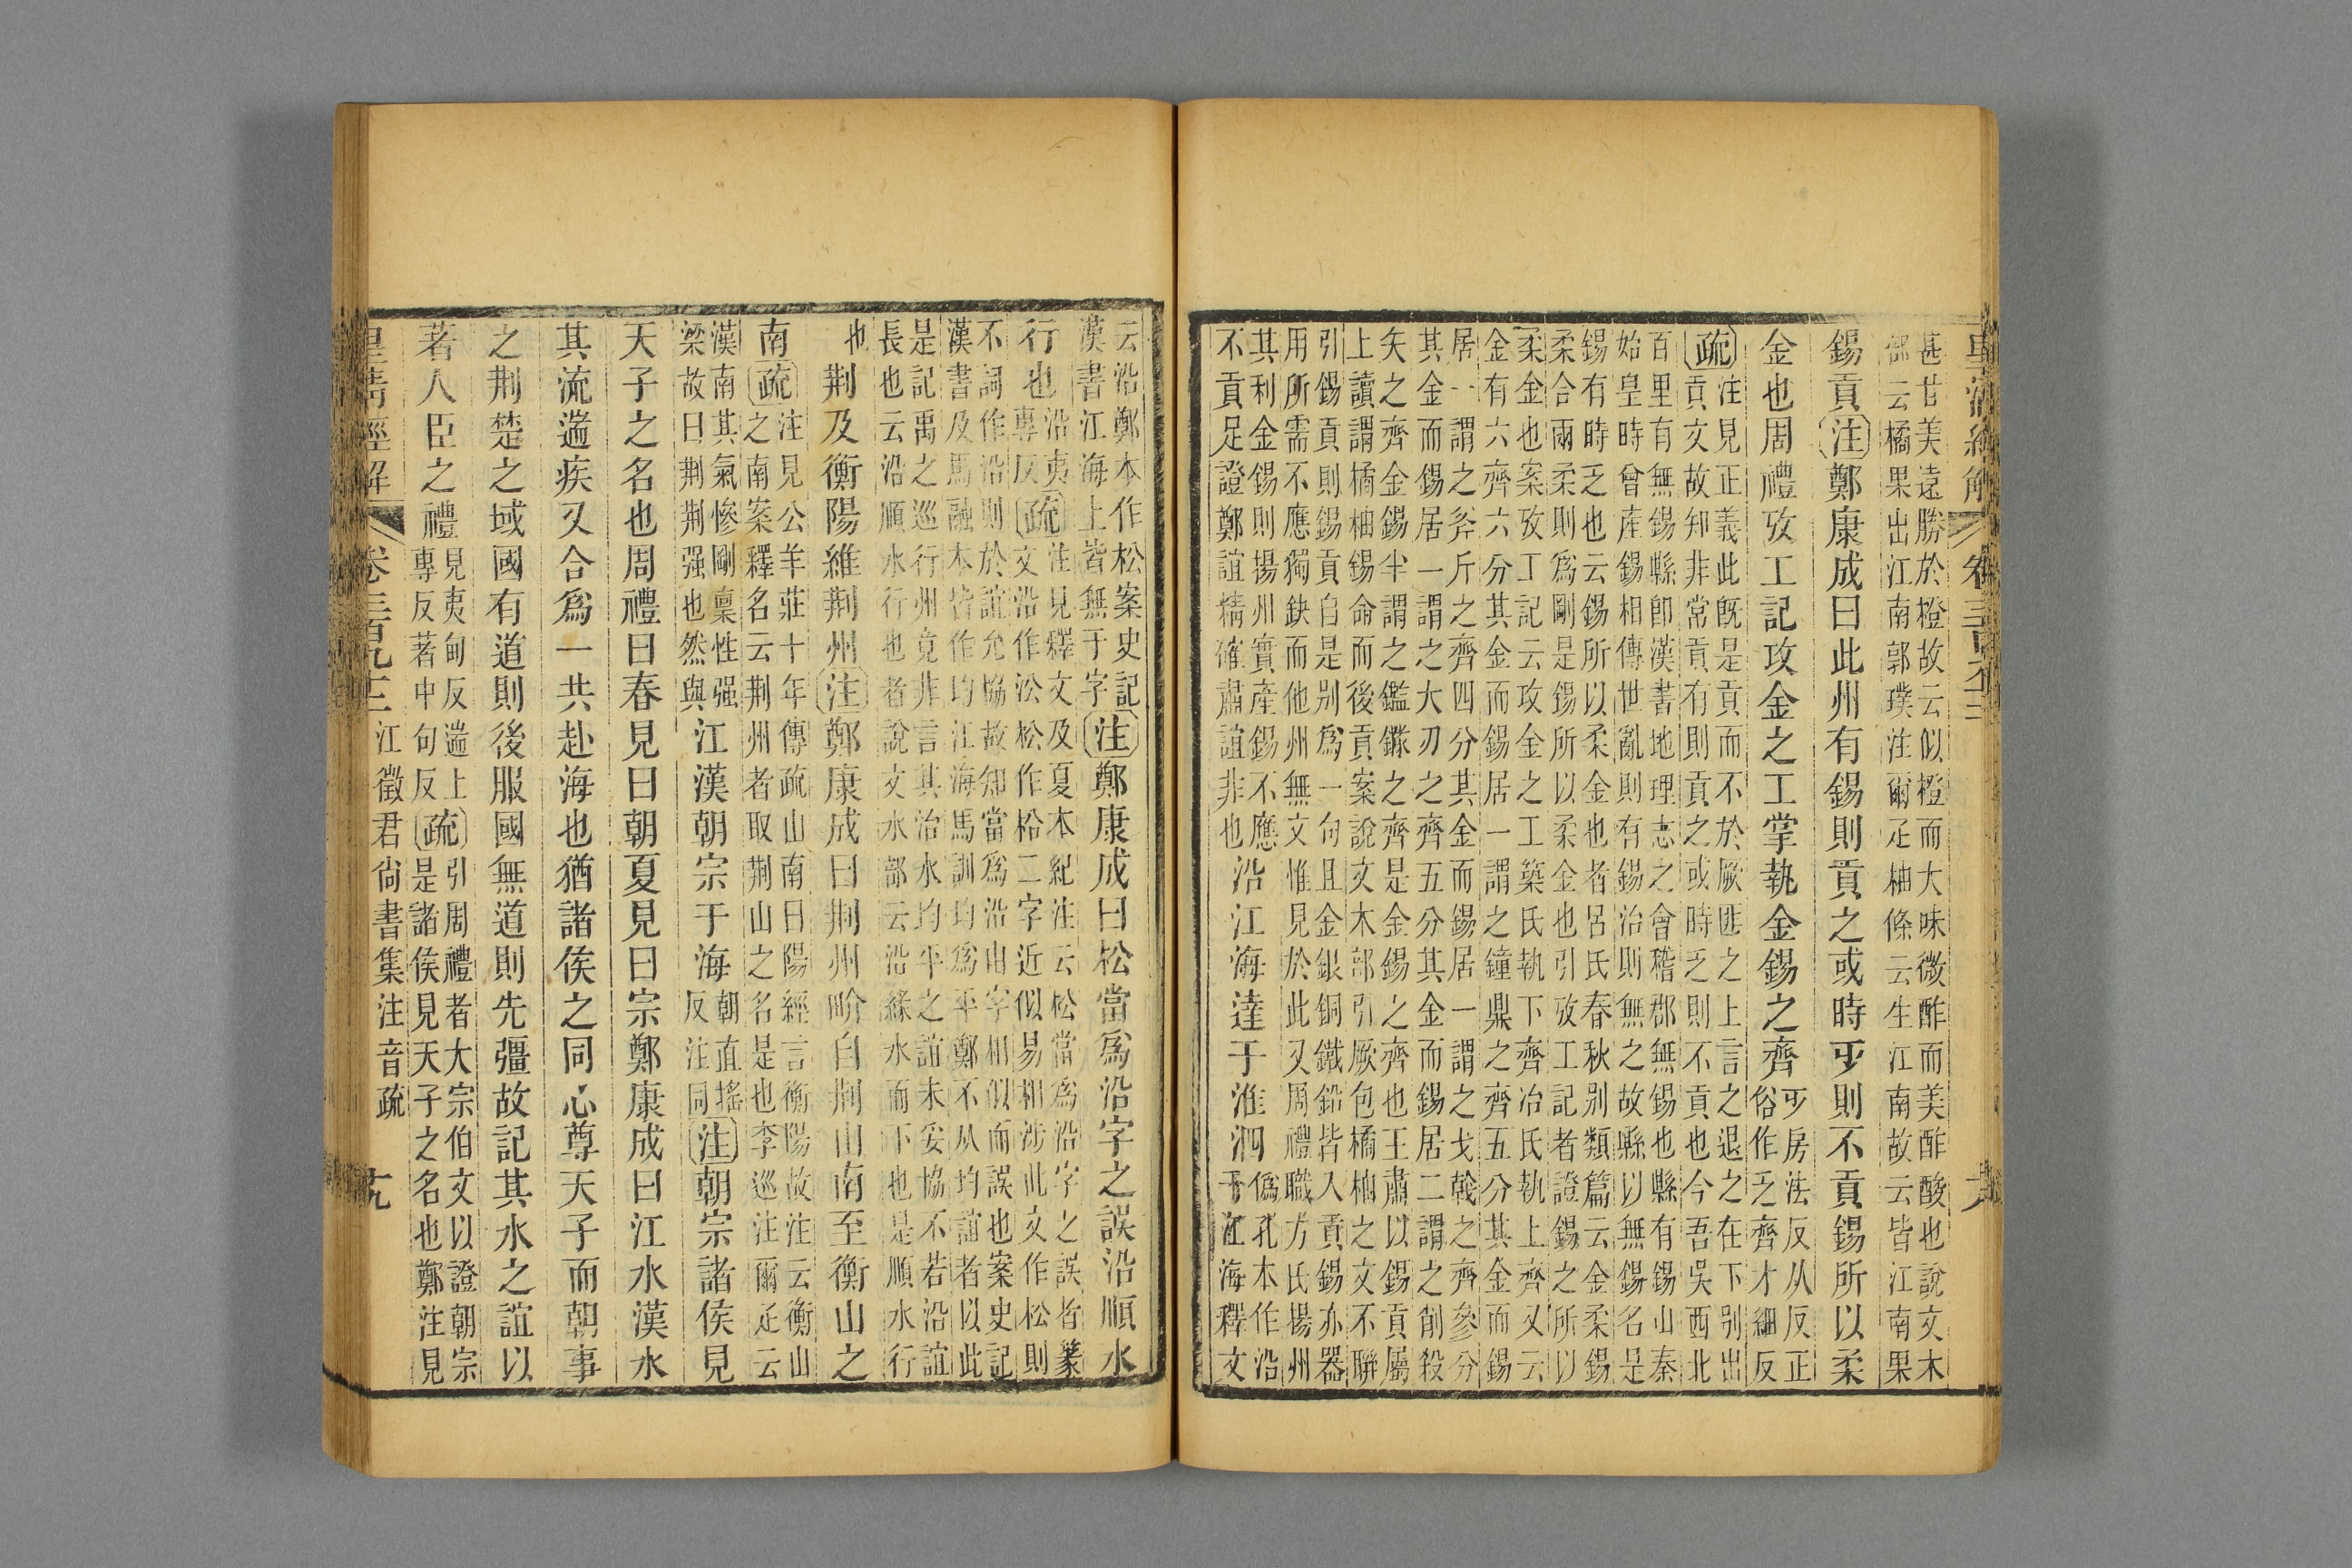 皇清經解 卷三百九十三
甚甘美遠勝於橙故云似橙而大味微酢而美酢酸也說文木
部云橘果出江南郭璞注爾疋柚條云生江南故云皆江南果
錫貢注鄭康成曰此州有錫則貢之或時𠂜則不貢錫所以柔
金也周禮攷工記攻金之工掌執金錫之齊
𠂜房法反从反正
俗作乏齊才細反
疏
注見正義此旣是貢而不於厥匪之上言之退之在下別出
貢文故知非常貢有則貢之或時乏則不貢也今吾吳西北
百里有無錫縣卽漢書地理志之會稽郡無錫也縣有錫山秦
始皇時曾產錫相傳世亂則有錫治則無之故縣以無錫名是
錫有時乏也云錫所以柔金也者呂氏春秋別類篇云金柔錫
柔合兩柔則爲剛是錫所以柔金也引攷工記者證錫之所以
柔金也案攷工記云攻金之工築氏執下齊冶氏執上齊又云
金有六齊六分其金而錫居一謂之鐘鼎之齊五分其金而錫
居一謂之斧斤之齊四分其金而錫居一謂之戈戟之齊參分
其金而錫居一謂之大刃之齊五分其金而錫居二謂之削殺
矢之齊金錫半謂之鑑鐩之齊是金錫之齊也王肅以錫貢屬
上讀謂橘柚錫命而後貢案說文木部引厥包橘柚之文不聯
引錫貢則錫貢自是別爲一句且金銀銅鐵鉛皆入貢錫亦器
用所需不應獨缺而他州無文惟見於此又周禮職方氏揚州
其利金錫則揚州實產錫不應
不貢足證鄭誼精確肅誼非也
沿江海達于淮泗
僞孔本作沿
于江海釋文
云沿鄭本作松案史記
漢書江海上皆無于字
注鄭康成曰松當爲沿字之誤沿順水
行也
沿夷
專反
疏
注見釋文及夏本紀注云松當爲沿字之誤者篆
文沿作㳂松作枱二字近似易相涉此文作松則
不詞作沿則於誼允協故知當爲沿㕣字相似而誤也案史記
漢書及馬融本皆作均江海馬訓均爲平鄭不从均誼者以此
是記禹之巡行州竟非言其治水均平之誼未妥協不若沿誼
長也云沿順水行也者說文水部云沿緣水而下也是順水行
也
荆及衡陽維荆州注鄭康成曰荆州畍自荆山南至衡山之
南疏
注見公羊莊十年傳疏山南曰陽經言衡陽故注云衡山
之南案釋名云荆州者取荆山之名是也李巡注爾疋云
漢南其氣慘剛稟性强
梁故曰荆荆强也然與
江漢朝宗于海
朝直搖
反注同
注朝宗諸侯見
天子之名也周禮曰春見曰朝夏見曰宗鄭康成曰江水漢水
其流遄疾又合爲一共赴海也猶諸侯之同心尊天子而朝事
之荆楚之域國有道則後服國無道則先彊故記其水之誼以
著人臣之禮
見夷甸反遄上
專反著中句反
疏
引周禮者大宗伯文以證朝宗
是諸侯見天子之名也鄭注見
皇清經解 卷三百九十三 江徵君尙書集注音疏 十九